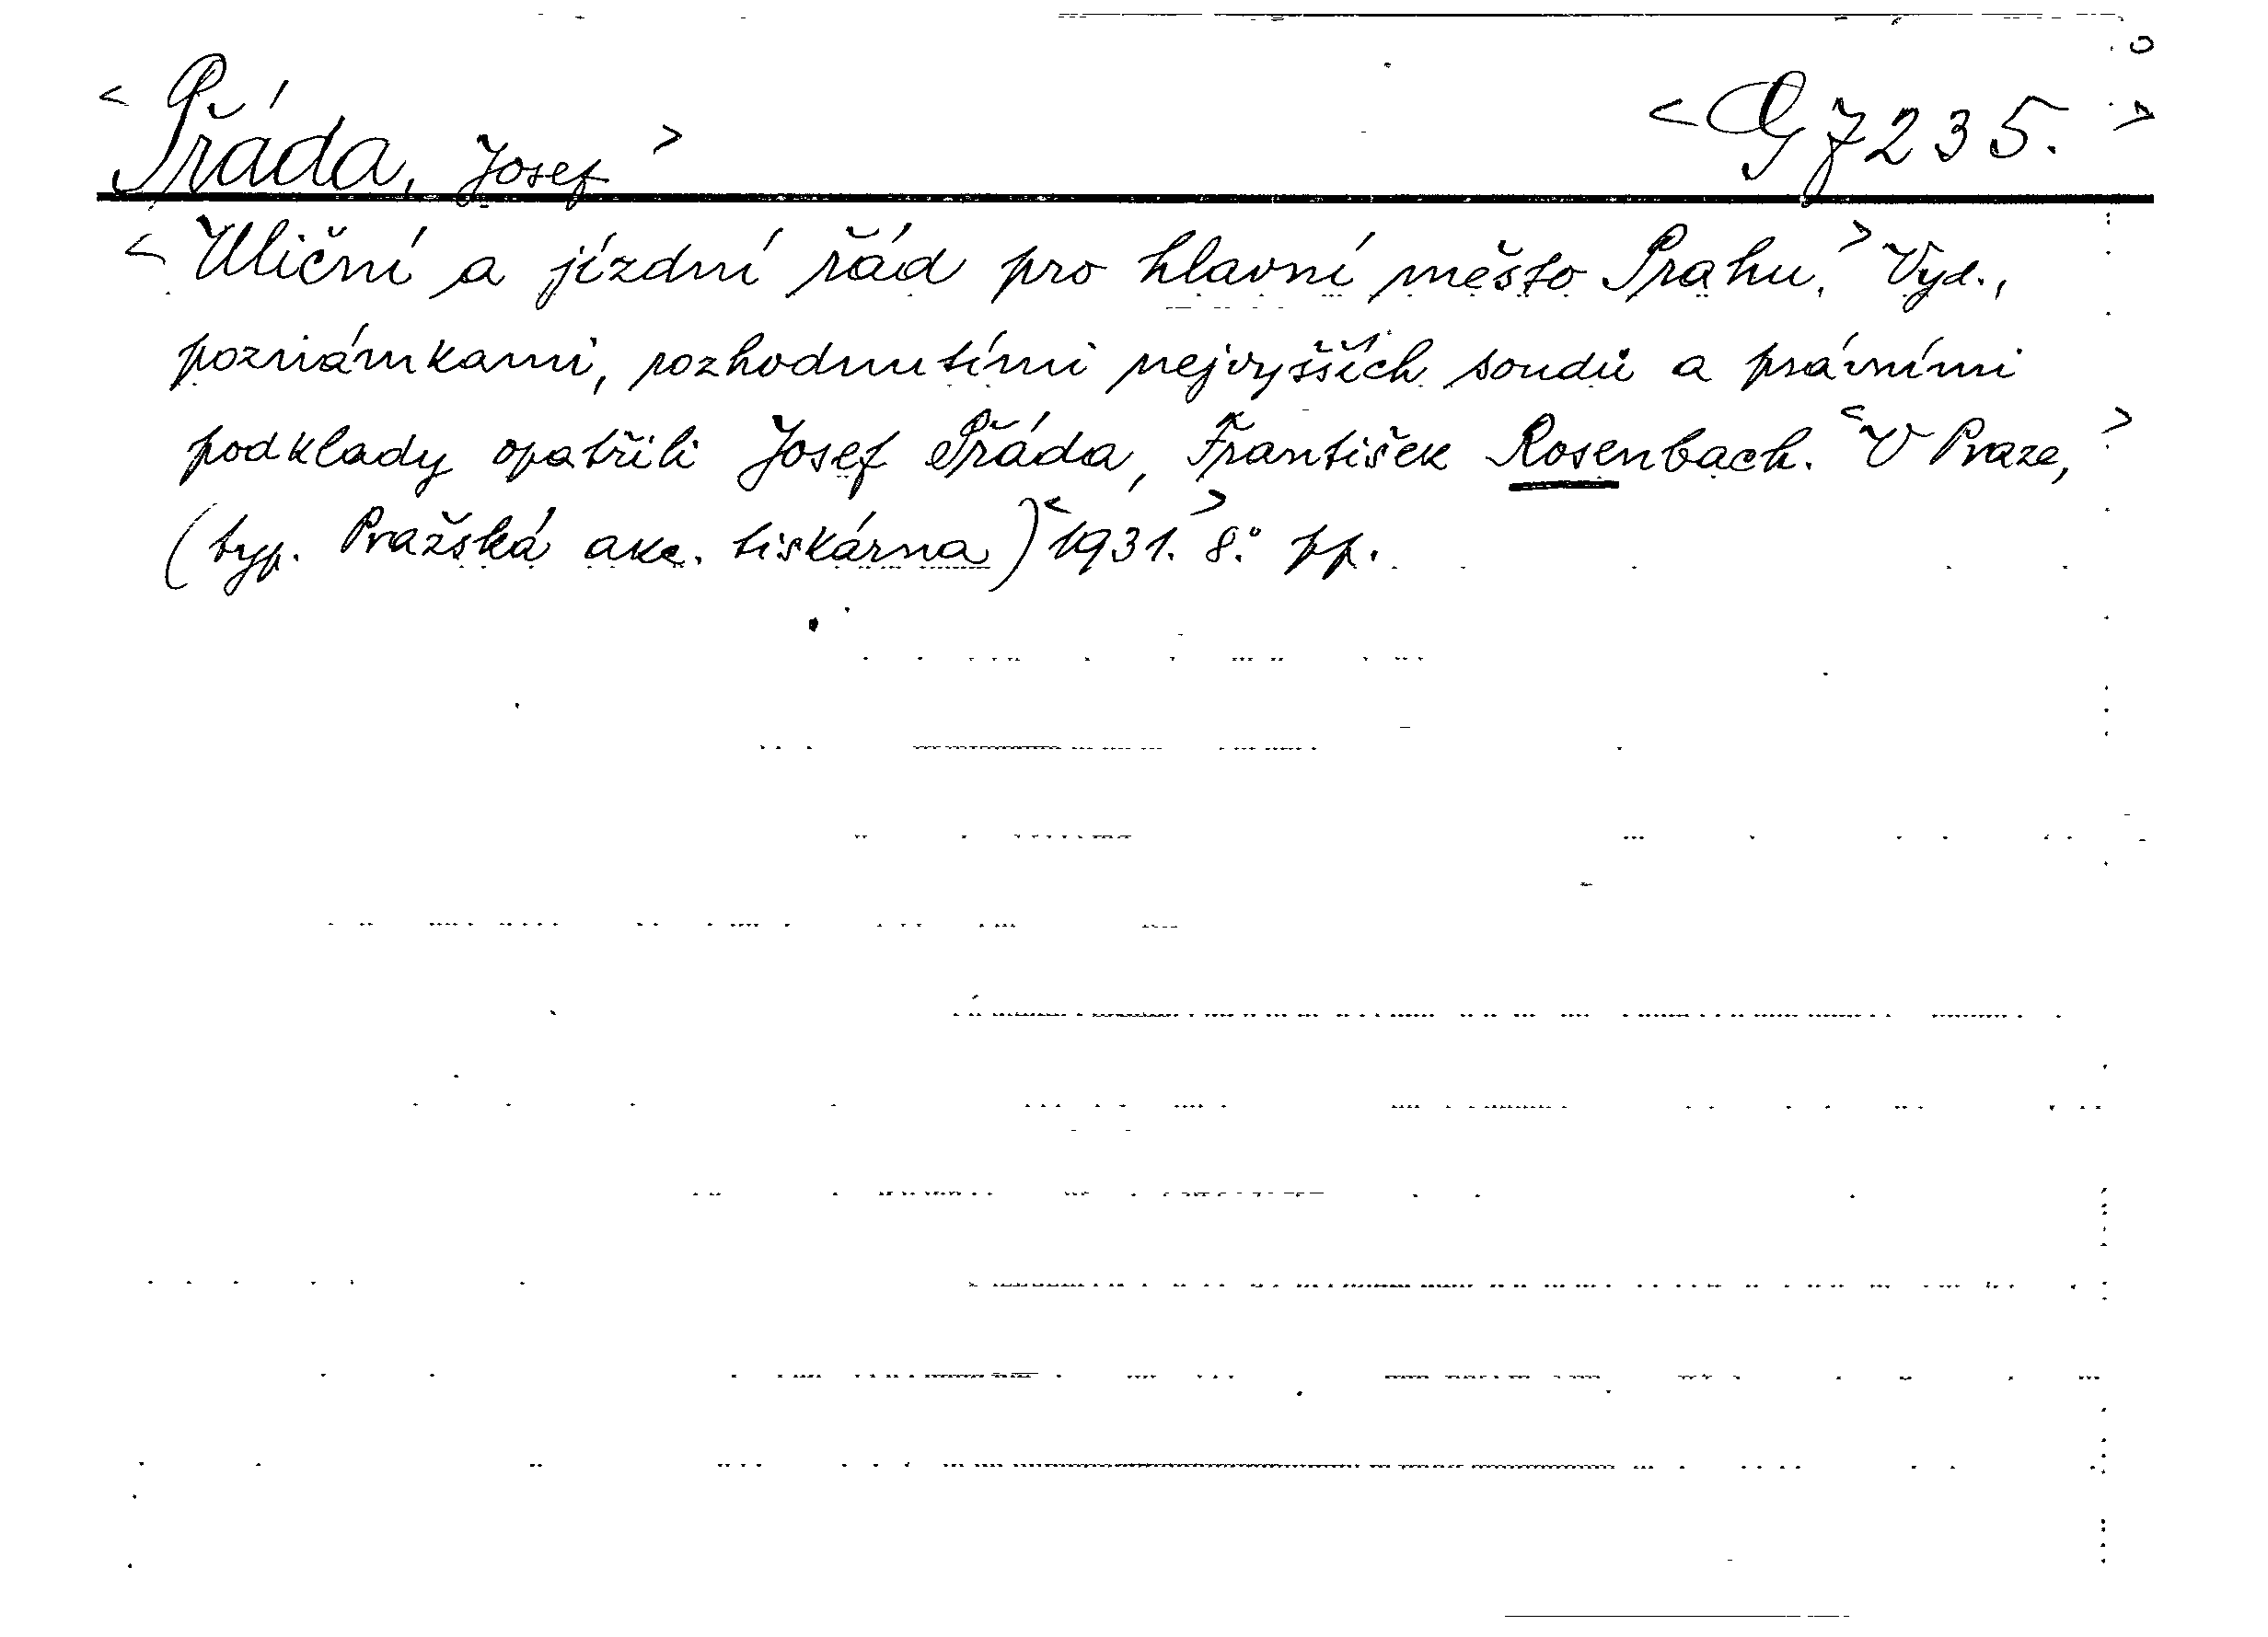 <Přáda, Josef> <G 7235.>
<Uliční a jízdní řád pro hlavní město Prahu.> Vyd.,
poznámkami, rozhodnutími nejvyšších soudů a právními
podklady opatřili Josef Přáda, František Rosenbach. <V Praze,>
(typ. Pražská akc. tiskárna) <1931.> 8.° pp.